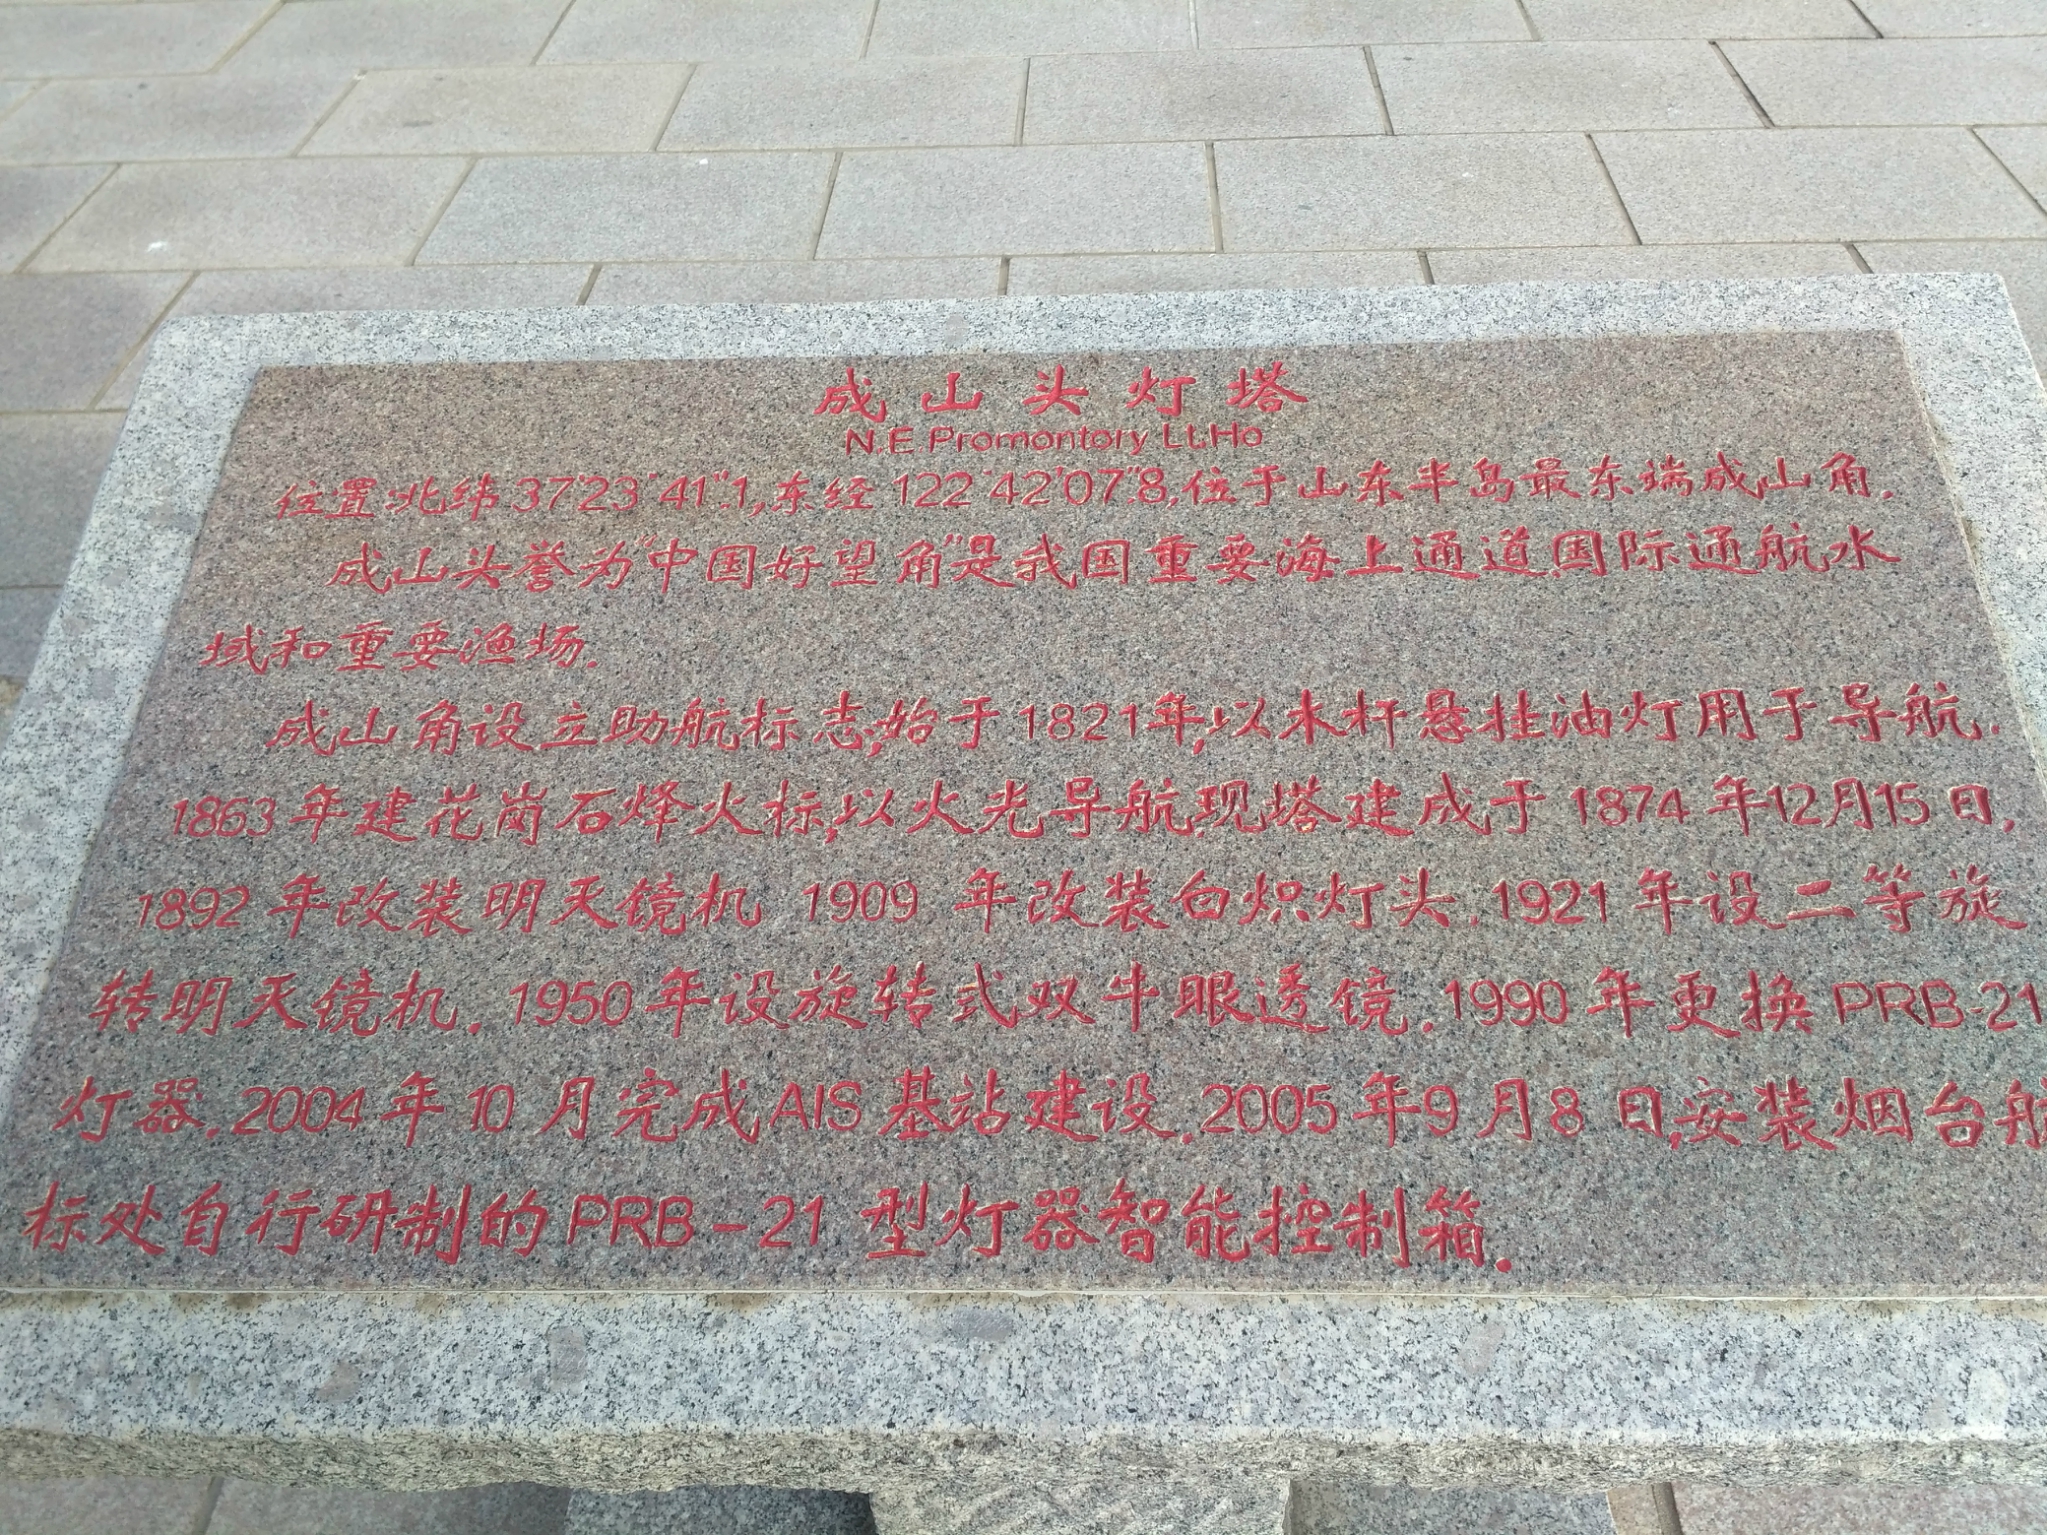 成山头灯塔
N.E.Promontory Lt.Ho
位置:北纬37°23′41″.1,东经122°42′07″.8,位于山东半岛最东端成山角.
成山头誉为"中国好望角"是我国重要海上通道,国际通航水
域和重要渔场.
成山角设立助航标志,始于1821年,以木杆悬挂油灯用于导航.
1863年建花岗石烽火标,以火光导航,现塔建成于1874年12月15日,
1892年改装明天镜机 1909年改装白炽灯头.1921年设二等旋
转明天镜机.1950年设旋转式双牛眼透镜.1990年更换PRB-21
灯器.2004年10月完成AIS基站建设.2005年9月8日,安装烟台航
标处自行研制的PRB-21型灯器智能控制箱.